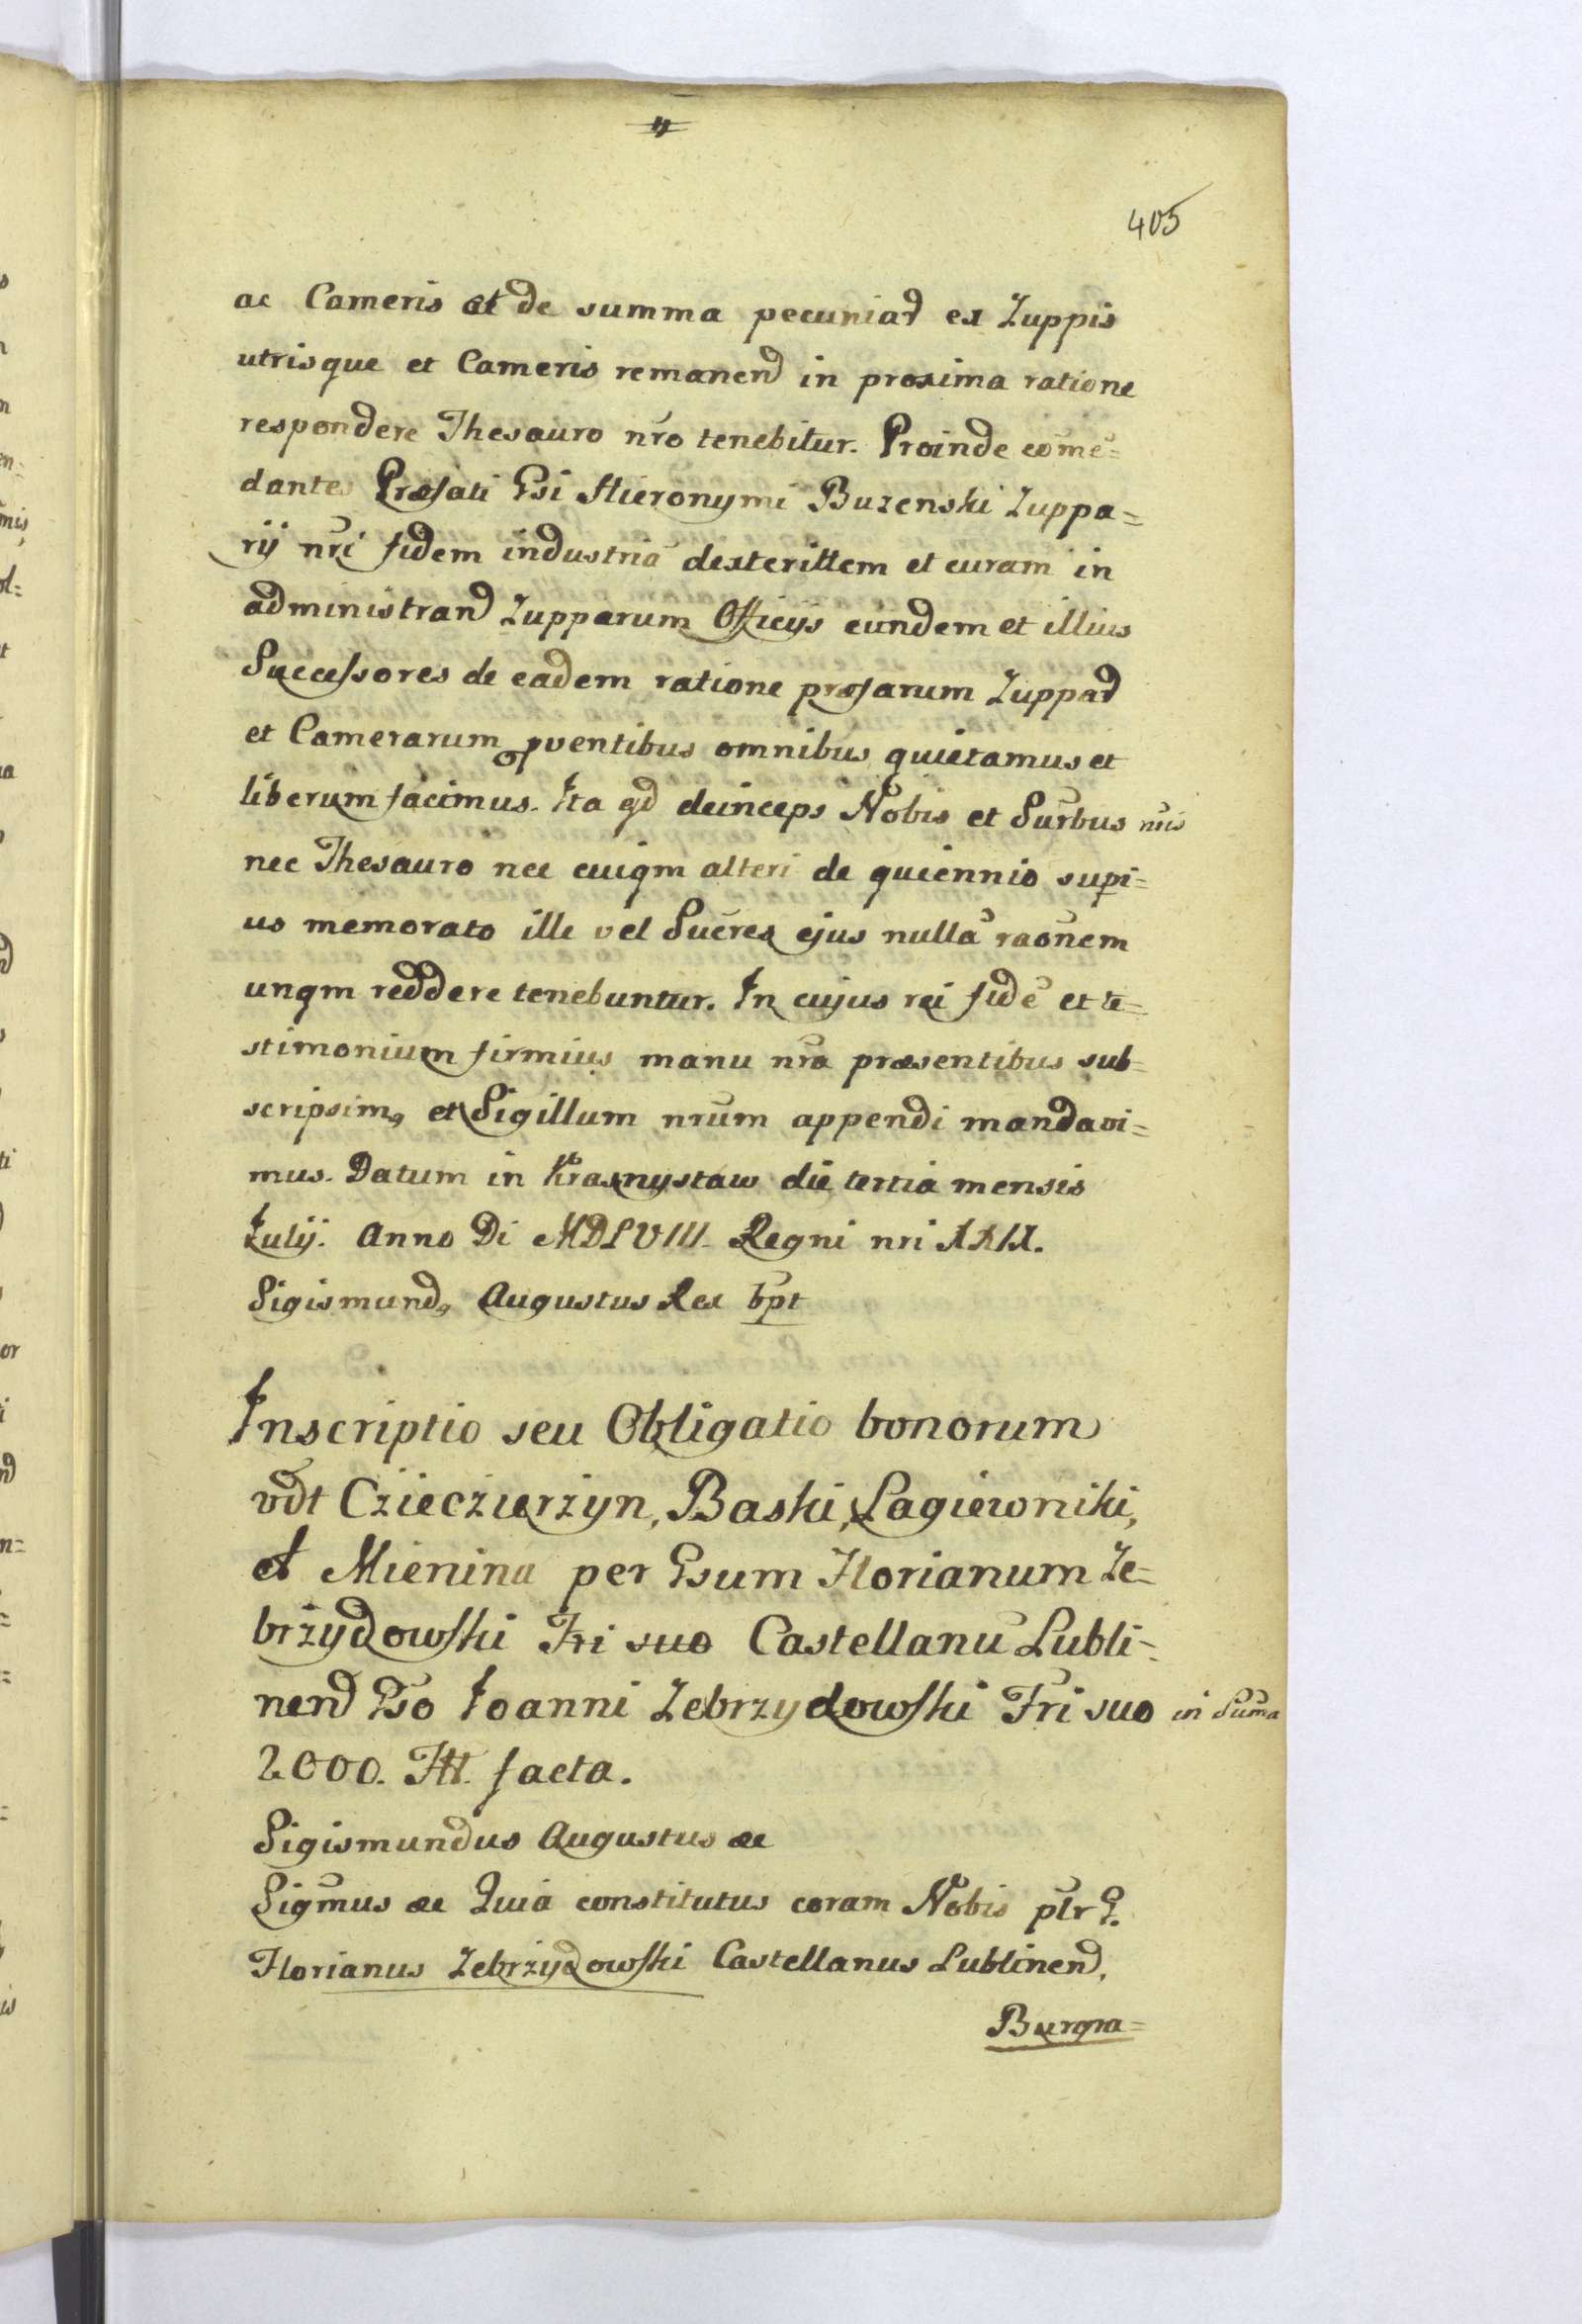 405
ac Cameris et de summa pecuniar ex Zuppis
utrisque et Cameris remanen in proxima ratione
respondere Thesauro nro tenebitur. Proinde come=
dantes Præfati Gsi Hieronymi Buzenski Zuppa=
rij nri fidem industriā dexterittem et curam in
administran Zupparum Officijs eundem et illius
Successores de eadem ratione præfarum Zuppar
et Camerarum pventibus omnibus quietamus et
liberum facimus. Ita qd deinceps Nobis et Surbus nris
nec Thesauro nec cuiqm alteri de quiennio supi=
us memorato ille vel Sucres ejus nullā raonem
unqm reddere tenebuntur. In cujus rei fidē et te=
stimonium firmius manu nra præsentibus sub=
scripsim, et Sigillum nrum appendi mandavi=
mus. Datum in Krasnystaw die tertia mensis
Julij. Anno Di MDLVIII. Regni nri XXIX.
Sigismund, Augustus Rex
Inscriptio seu Obligatio bonorum
vdt Czieczierzyn, Baski, Lagiewniki,
et Mienina per Gsum Florianum Ze=
brzydowski Fri suo Castellanū Lubli=
nen Gso Joanni Zebrzydowski Fri suo in Suma
2000. Fll. facta.
Sigismundus Augustus æc
Sigmus æc Quia constitutus coram Nobis pltr G.
Florianus Zebrzydowski Castellanus Lublinen,
Burgra=